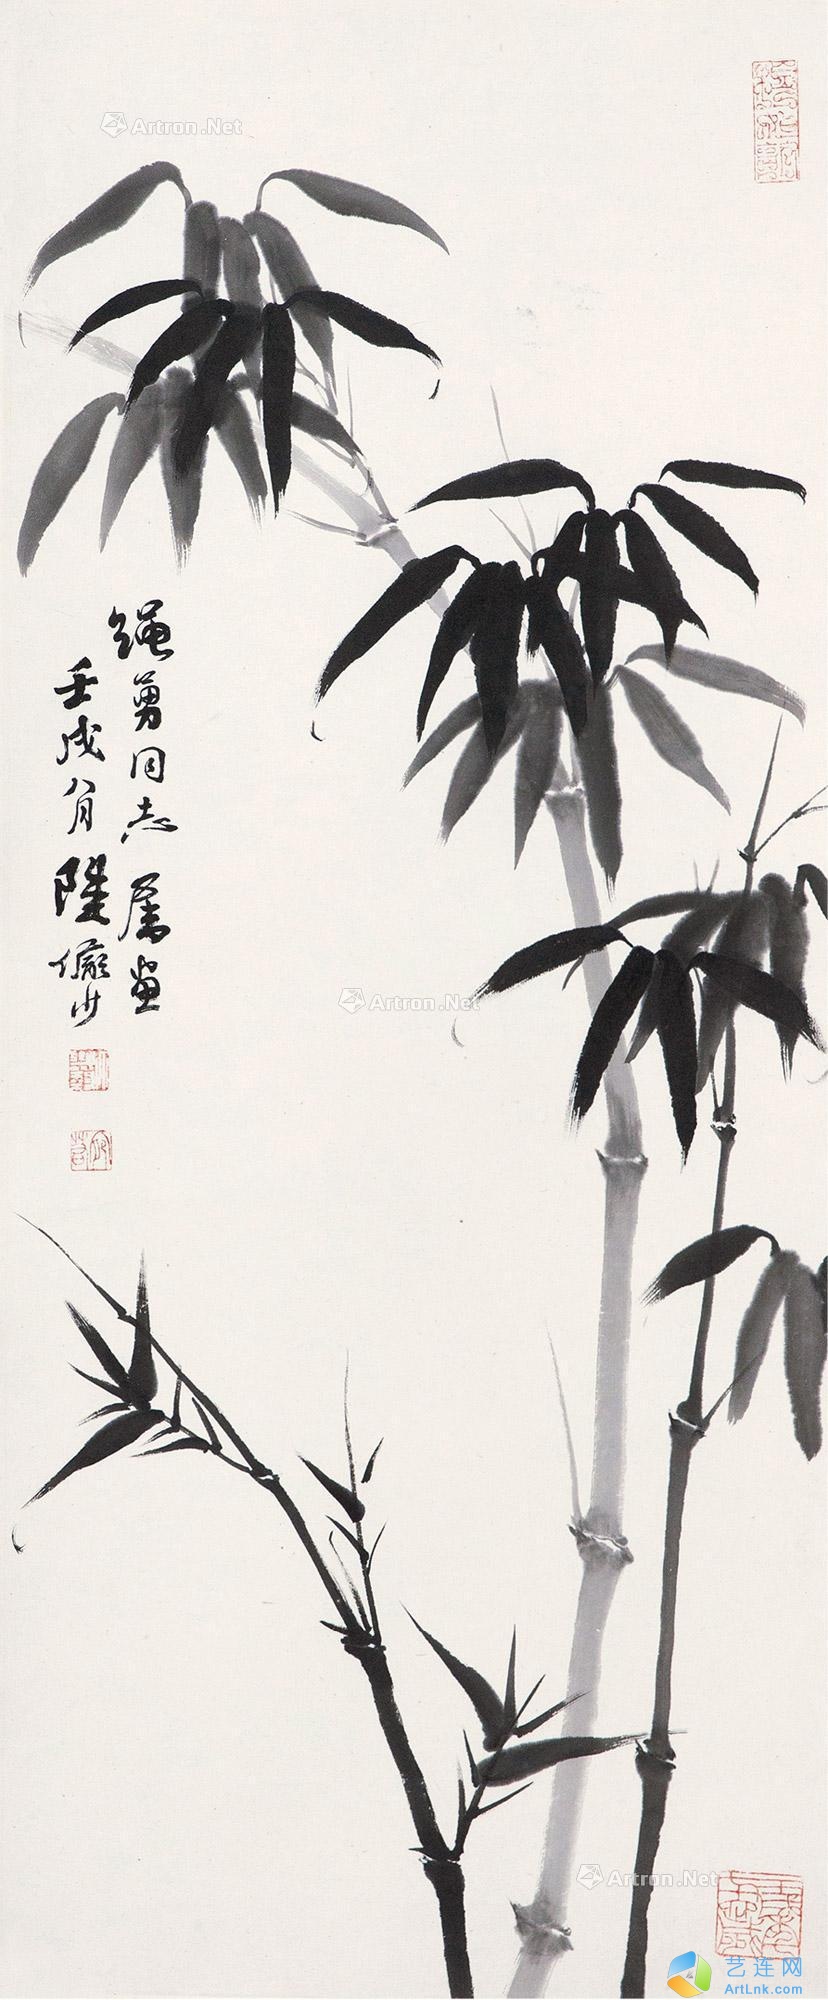 Artron.Net
绳勇同志属画
壬戌八月陆俨少
Artron.Net
Artron.Net
艺连网
ArtLnk.com